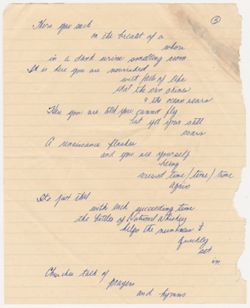 ②
Here you suck
on the breast of a
whore
in a dark serine smelling room
It is here you are nourished
with pills of life
that the sun shines
& the ocean roars
Here you are told you cannot fly
but yet you still
soars
A renaissance flashes
and you are yourself
being
record time/time/time
again
It's just that
with each succeeding time
the bottles of National whiskey
helps the numbness &
quickly
set
in
Churches talk of
prayers
and hymns